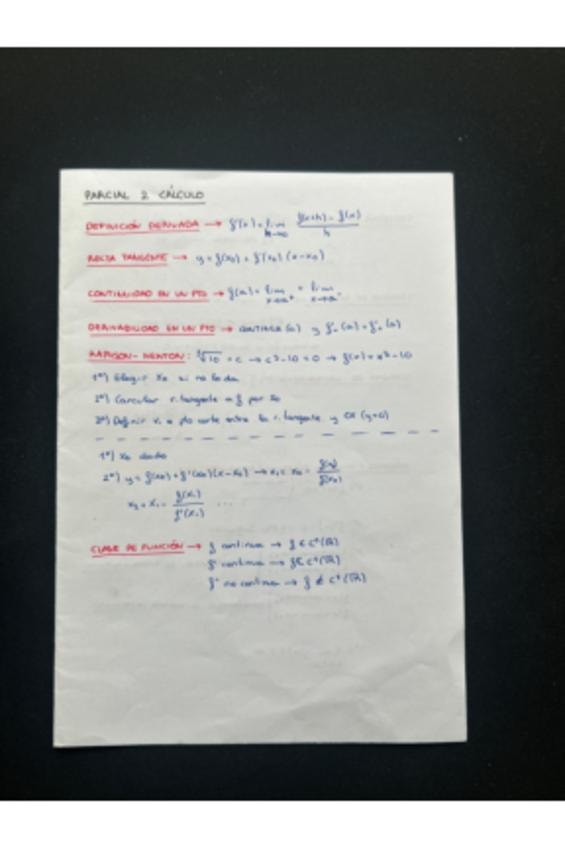 PARCIAL 2 CÁLCULO
DEFINICIÓN DERIVADA → f'(x) = lim h→0 f(x+h) - f(x) / h
RECTA TANGENTE → y = f(x0) + f'(x0) (x-x0)
CONTINUIDAD EN UN PTO → f(a) = lim x→a+ = lim x→a-
DERIVABILIDAD EN UN PTO → continua (a) y f'-(a) = f'+(a)
RAPHSON - NEWTON: = c → c³-10 = 0 → f(x) = x³-10
1º) Elegir x0 si no la da
2º) Calcular r. tangente a f por x0
3º) Definir x1 = pto corte entre la r. tangente y OX (y=0)
1º) x0 dado
2º) y = f(x0) + f'(x0)(x-x0) → x1 = x0 - f(x0) / f'(x0)
x2 = x1 - f(x1) / f'(x1) ...
CLASE DE FUNCIÓN → f continua → f ∈ (ℝ)
f' continua → f ∈ C¹(ℝ)
f' no continua → f ∉ C¹(ℝ)